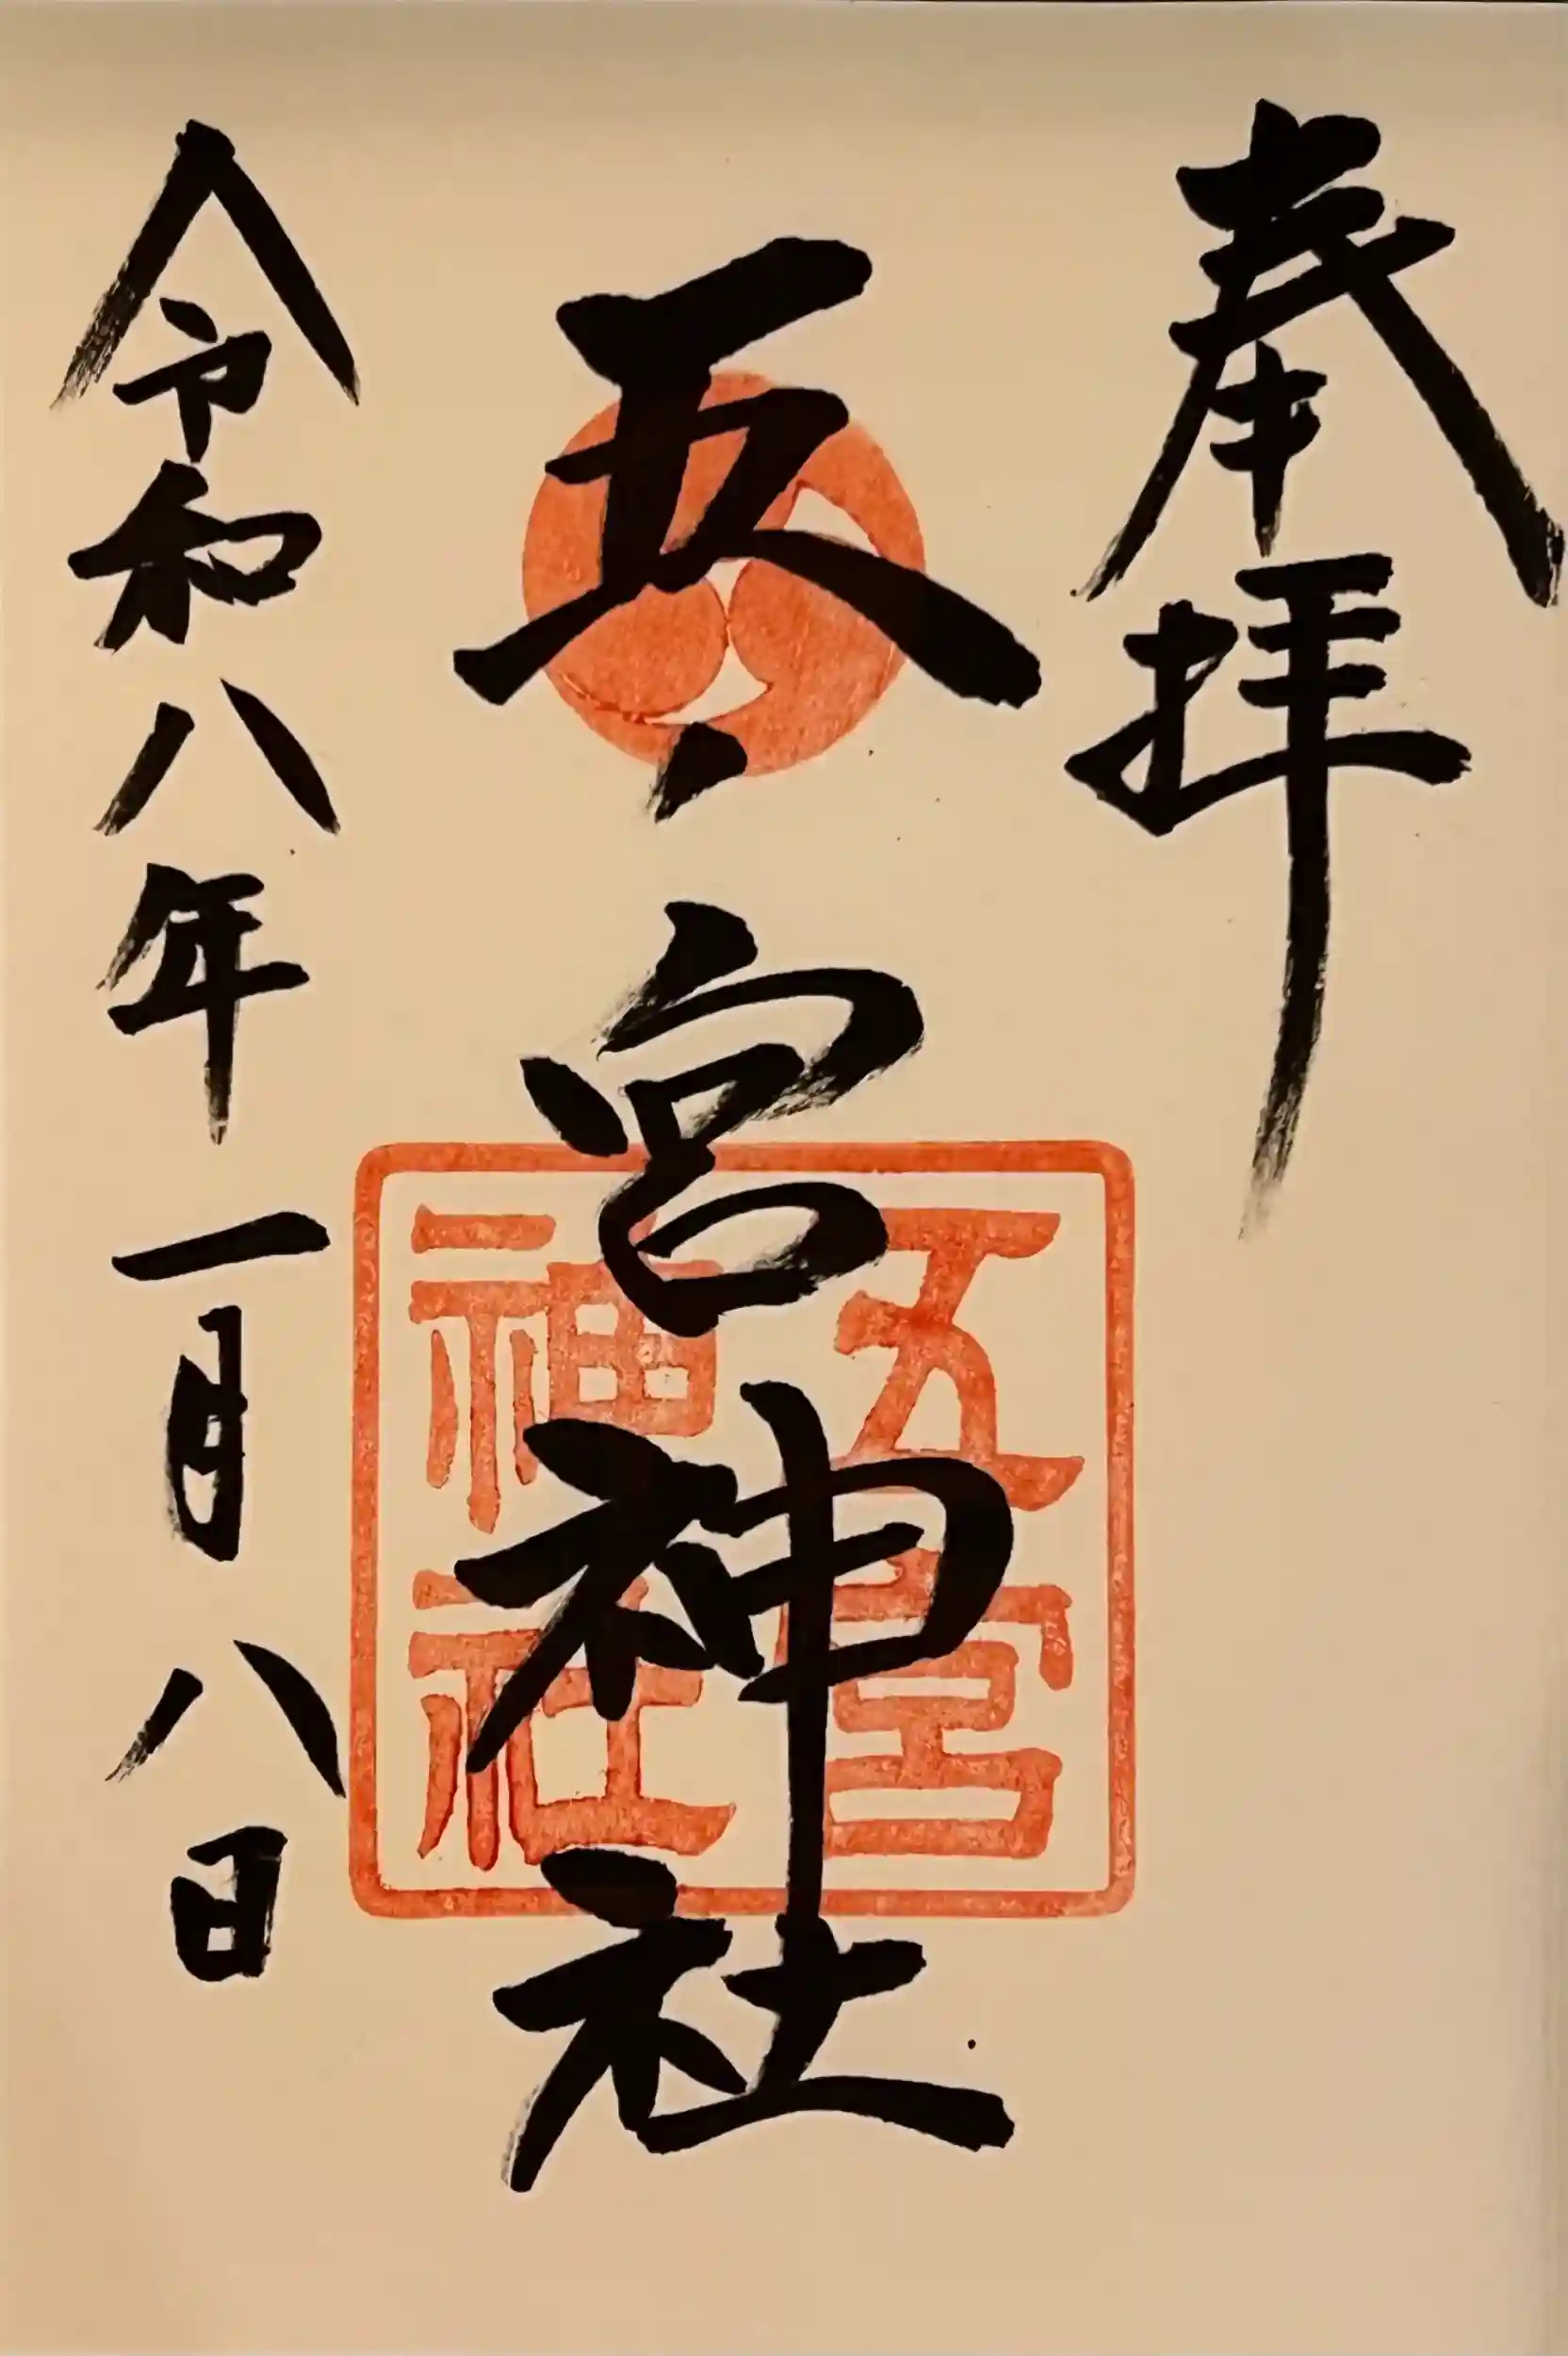 奉拝
五宮神社
五宮
神社
令和八年一月八日